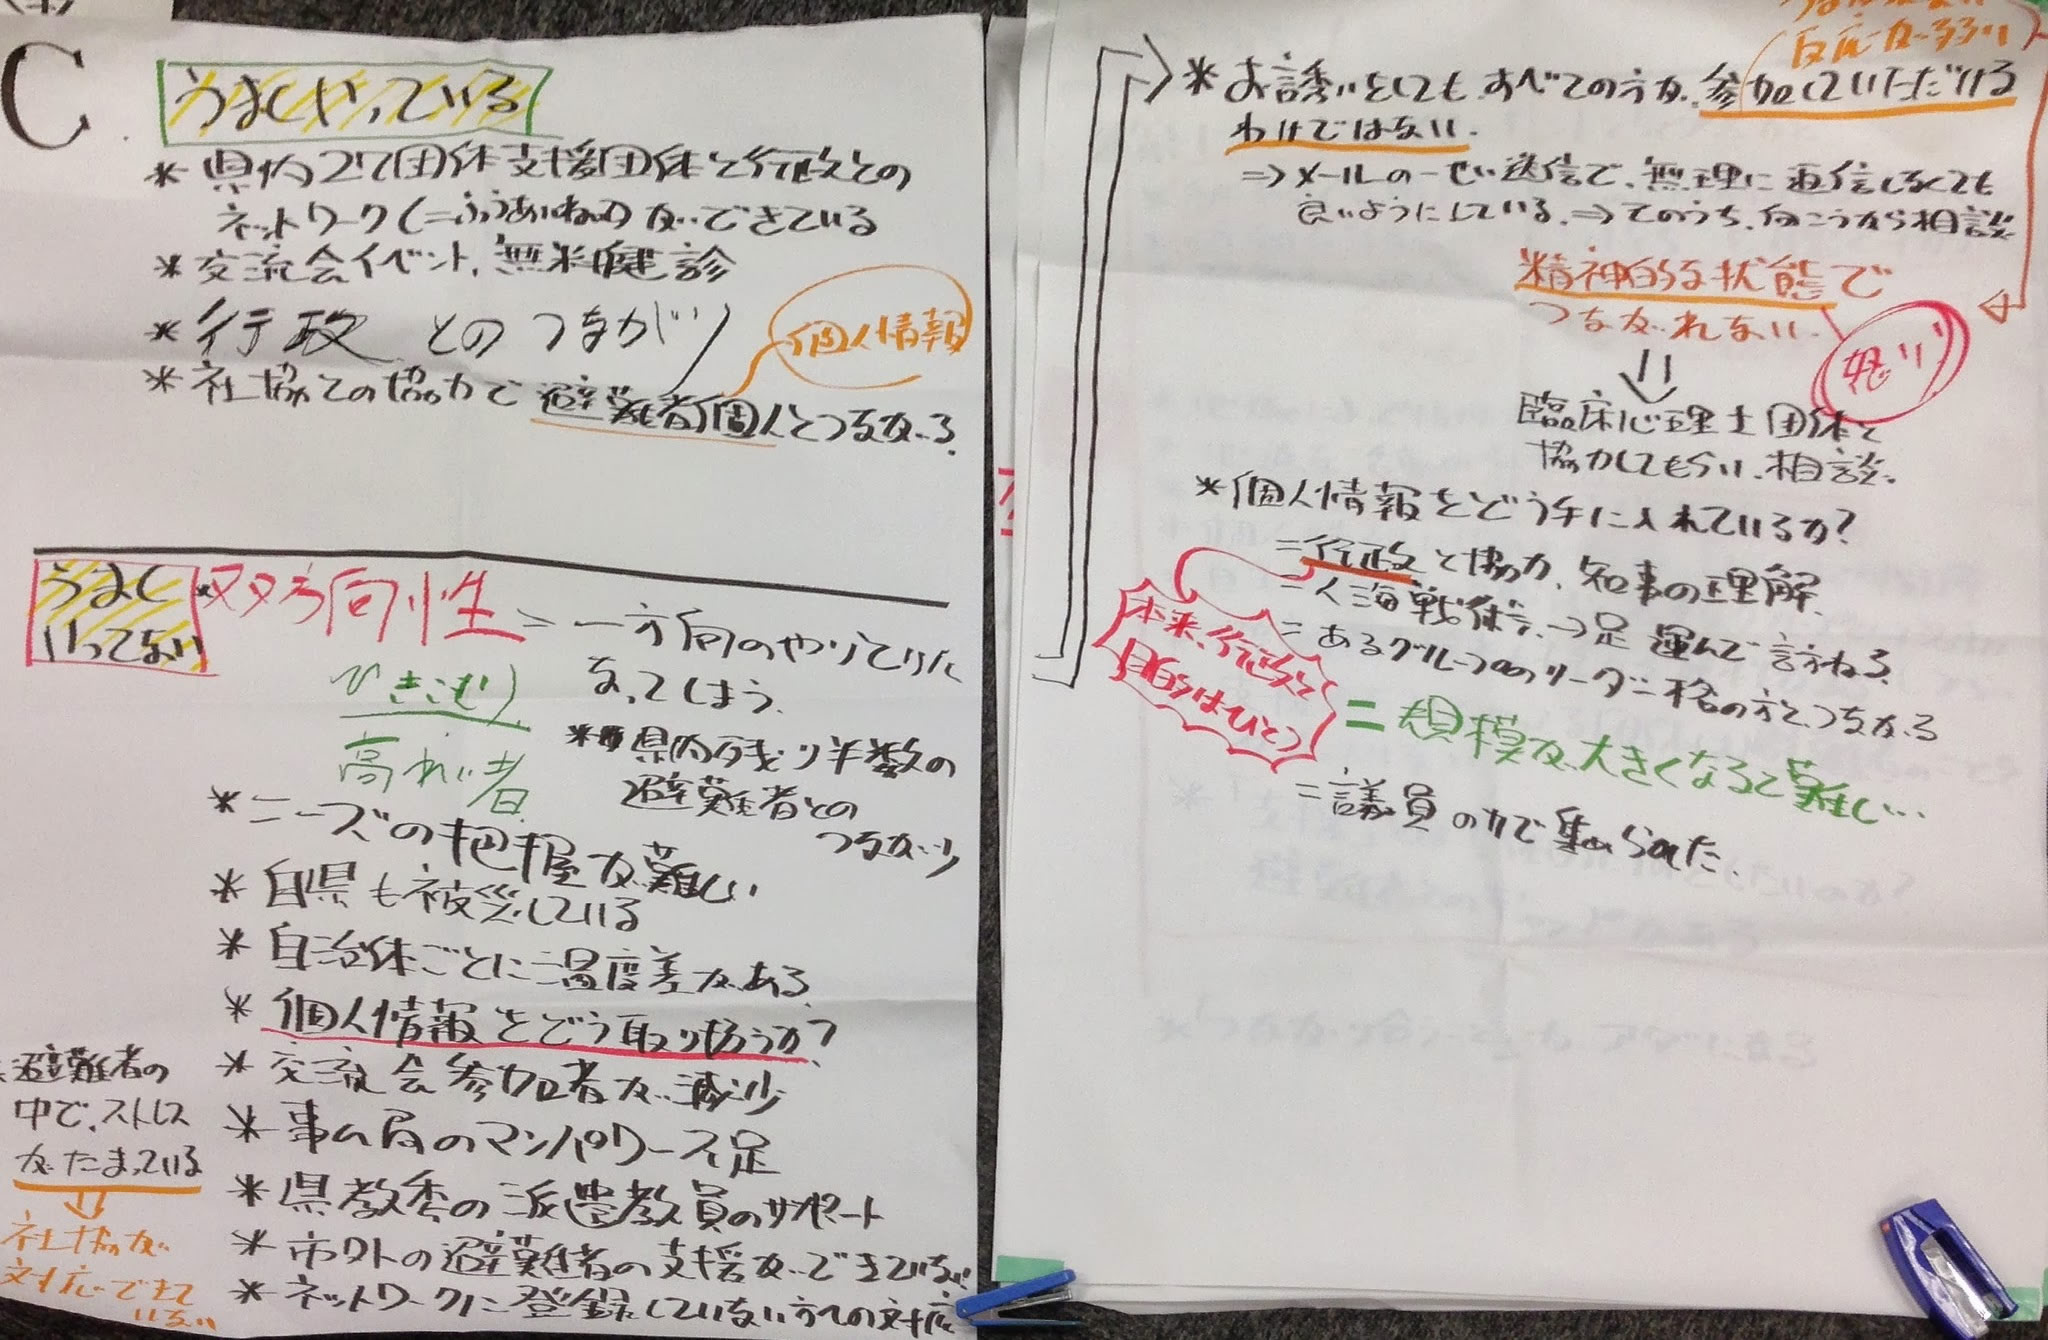 C
うまくやっている
* 県内27団体支援団体と行政との
ネットワーク(=ふうあいねっと)ができている
* 交流会イベント、無料健診
* 行政とのつながり
個人情報
* 社協との協力で避難者個人とつながる.
うまく
いってない
* 双方向性 = 一方向のやりとりに
なってしまう.
ひきこもり
高れい者
* 県内残り半数の
避難者との
つながり
* ニーズの把握が難しい
* 自県も被災している
* 自治体ごとに温度差がある.
* 個人情報をどう取り扱うか?
* 交流会参加者が減少
* 事ム局のマンパワー不足
* 県教委の派遣教員のサポート
* 市外の避難者の支援ができていない
* ネットワークに登録していない方への対応
避難者の
中で、ストレス
がたまっている
⇓
社協が
対応できて
いない
反応が弱い
* お誘いをしても、すべての方が、参加していただける
わけではない.
⇒メールの一せい送信で、無理に返信しなくても
良いようにしている.⇒そのうち、向こうから相談
精神的な状態で
つながれない.
怒り
⇓
臨床心理士団体と
協力してもらい、相談.
* 個人情報をどう手に入れているか?
=行政と協力、知事の理解.
=人海戦術→足運んで訪ねる.
=あるグループのリーダー格の方とつながる
本来、行政と
目的はひとつ
=規模が大きくなると難しい…
=議員の力で集められた.